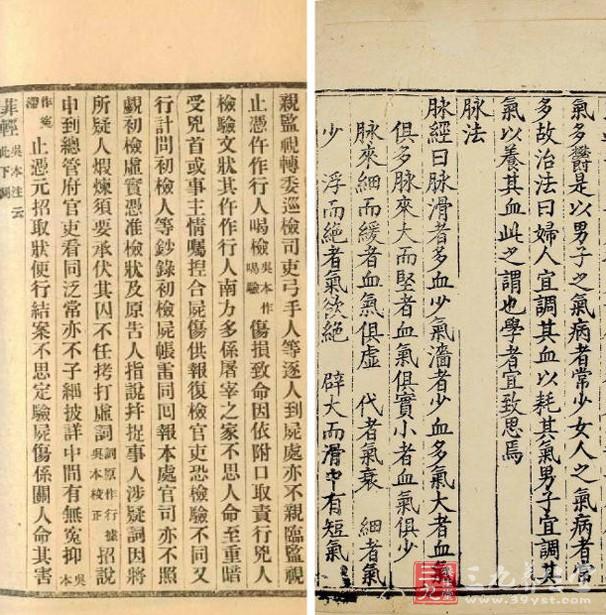 氣多鬱是以男子之氣病者常少女人之氣病者常
多故治法曰婦人宜調其血以耗其氣男子宜調其
氣以養其血此之謂也學者宜致思焉
脉法
脉經曰脉滑者多血少氣濇者少血多氣大者血氣
俱多脉來大而堅者血氣俱實小者血氣俱少
脉來細而緩者血氣俱虛 代者氣衰 細者氣
少 浮而絕者氣欲絕 辟大而滑中有短氣
親監視轉委巡檢司吏弓手人等逐人到屍處亦不親臨監視
止憑仵作行人喝檢吳本作喝驗傷損致命因依附口取責行兇人
檢驗文狀其仵作行人南方多係屠宰之家不思人命至重暗
受兇首或事主情囑揑合屍傷供報復檢官吏恐檢驗不同又
行計問初檢人等鈔錄初檢屍帳雷同回報本處官司亦不照
覷初檢虛實憑准檢狀及原告人指說幷捉事人涉疑詞因將
所疑人煆煉須要承伏其囚不任拷打虛詞詞原作行據吳本校正招說
申到總管府官吏看同泛常亦不子細披詳中間有無冤抑吳本
作冤滯止憑元招取狀便行結案不思定驗屍傷係關人命其害
菲輕吳本注云此下闕
三九養生堂
www.39yst.com